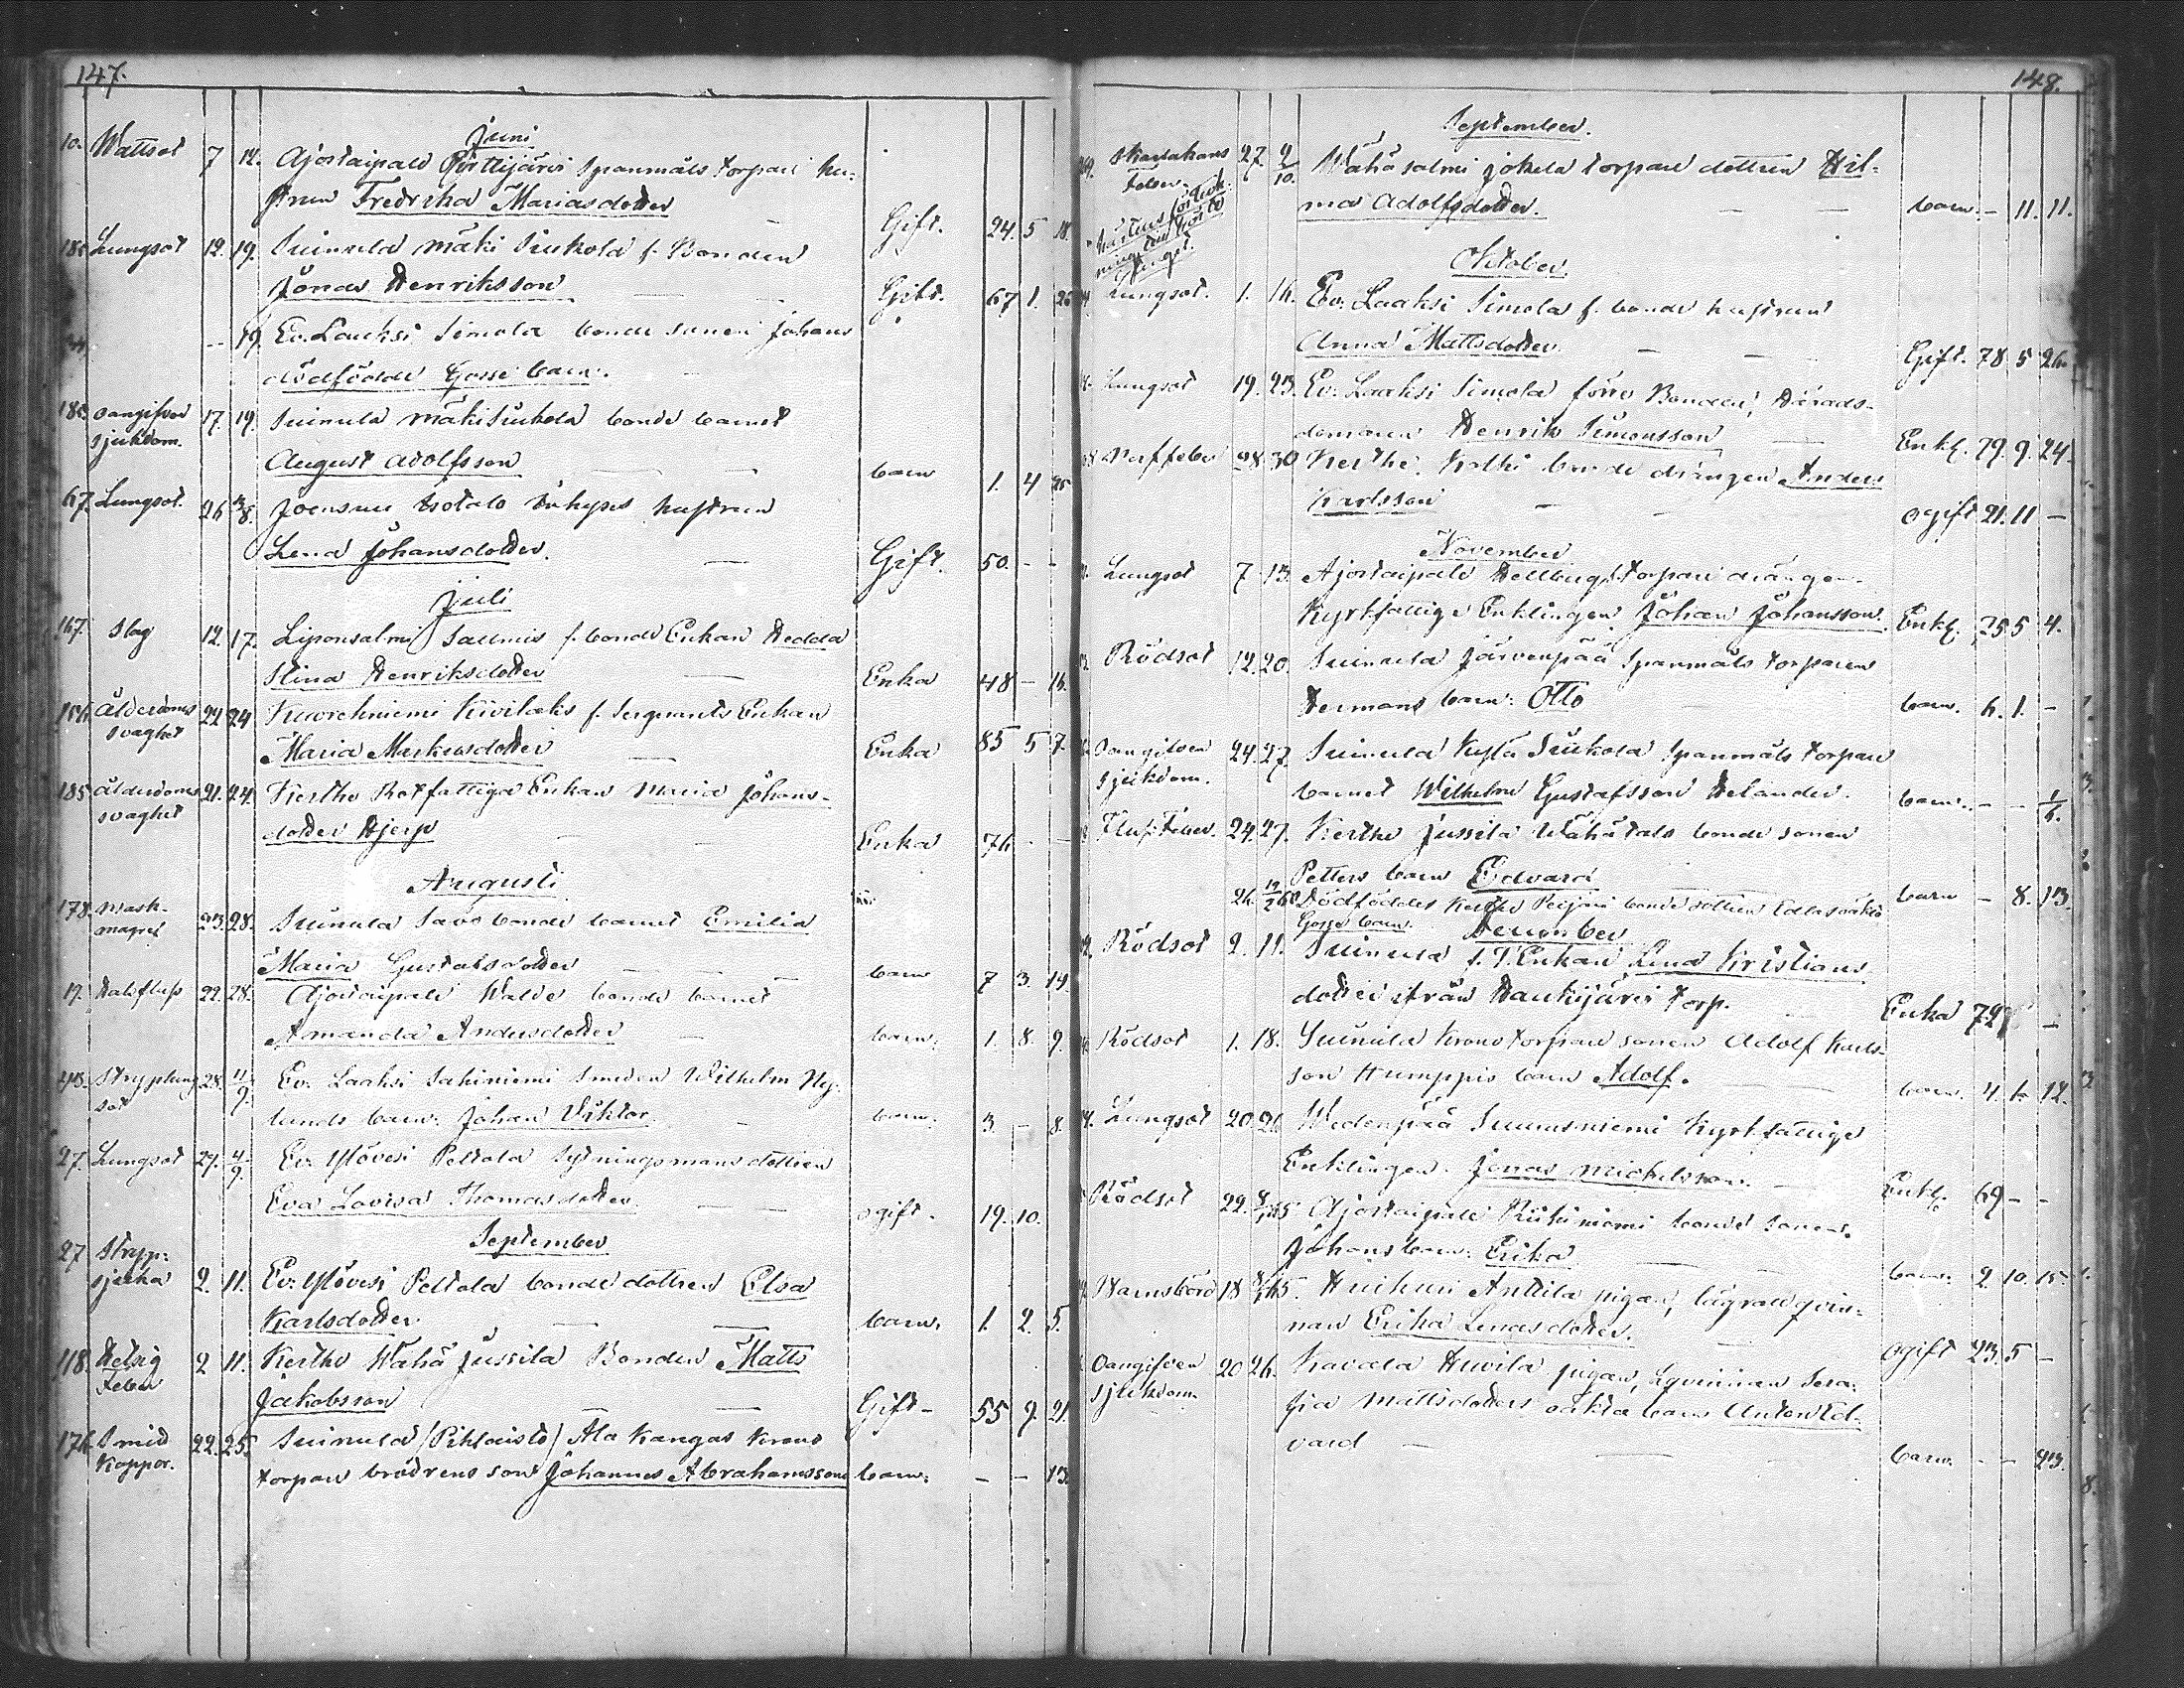 147.
Juni
10. Wattsot 7 12. Ajostaipale Pyttijärvi Spanmåls torpare hu-
strun Fredrika Mariasdotter Gift. 24. 5 18.
Lungsot 12. 19. Suinula mäki Siukola f. Bonden
Jonas Henriksson Gift. 67 1.
-- 19. Ev. Laaksi Simola bonde sonen Johans
dödfödde Gosse barn.
oangifven 17. 19. Suinula mäki Siukola bonde barnet
sjukdom.
August Adolfsson barn 1. 4 25
67. Lungsot. 26 3/8. Joensuu Isotalo Inhyses hustrun
Lena Johansdotter. Gift. 50. - -
Juli
167. Slag 12. 17. Liponsalmi Salmis f. bonde Enkan Hedda
Stina Henriksdotter Enka 48 - 16.
Ålderdoms 22 24 Kuorehniemi Kivilaks f. Sergeants Enkan
svaghet
Maria Markusdotter Enka 85 5 7.
185 Ålderdoms 21. 24. Kertho Rotfattiga Enkan Maria Johans-
svaghet
dotter Hjerp Enka 76 - -
Augusti
178. Mask- 23. 28. Suinula Savo bonde barnet Emilia
magref
Maria Gustafsdotter barn 7 3. 19.
19. Halsfluss 22. 28. Ajostaipale Walde bonde barnet
Amanda Andersdotter barn. 1. 8. 9.
Stryplung 28. 4/9. Ev. Laaksi Sahiniemi Smeden Wilhelm Ny-
sot
lunds barn. Johan Viktor. barn. 3. - 8.
27. Lungsot 27. 4/9. Ev. Ylövesi Peltola Sytningsmans dottren
Eva Lovisa Thomasdotter ogift. 19. 10.
September
27 Stryp-
sjuka 2. 11. Ev. Ylövesi Peltola bonde dottren Elsa
Karlsdotter barn. 1. 2. 5.
118. Hetsig 2 11. Kertho Wähä Jussila Bonden Matts
feber
Jakobsson Gift - 55 9. 21.
176. Smid 22. 25. Suinula (Pihlaisto) Ala Kangas Krono
Koppor.
torpare brödrens son Johannes Abrahamsson barn. - - 13.
148.
September.
Skarlakans 27. 2/10. Wähäsalmi Jokela torpare dottren Hil-
feber.
ma Adolfsdotter. barn. - 11. 11.
Oktober.
Lungsot. 1. 16. Ev. Laaksi Simola f. bonde hustrun
Anna Mattsdotter Gift. 78 5 26.
Lungsot 19. 23. Ev. Laaksi Simola förre Bonden, Härads-
domaren Henrik Simonsson Enkl. 79. 9. 24.
Narffeber 28 30 Kertho Kolhi bonde drängen Anders
Karlsson ogift 21. 11 -
November
Lungsot 7 13. Ajostaipale torpare drängen
Kyrkfattige Enklingen Johan Johansson. Enkl. 75 5 4.
Rödsot 12. 20. Suinula Järvenpää Spanmåls torparen
Hermans barn: Otto barn. 6. 1. -
Oangifven 24. 27. Suinula Kylä Siukola Spanmåls torpare
sjukdom.
barnet Wilhelm Gustafsson Helander. barn. - - 1/6.
Fluss Feber. 24. 27. Kertho Jussila Wähätalo bonde sonen
Petters barn Edvard barn - 8. 13.
26. Dödföddes Kertho bonde dottren Eddas oäkta
Gosse barn.
December
Rödsot 2. 11. Suinula f. T. Enkan Lena Kristians
dotter ifrån Haukijärvi torp. Enka 79
Rödsot 1. 18. Suinula Krono torpare sonen Adolf Karls-
son Humppis barn Adolf. barn. 4. 6 12.
Lungsot 20 26 Wedenpää Suurusniemi Kyrkfattige
Enklingen. Jonas Mickelsson. Enkl. 69 - -
Rödsot 22. Ajostaipale Riihiniemi bonde sonens
Johans barn. Erika barn. 2. 10. 15.
Barnsbörd 18 Huihuri Anttila pigan, lägrade qvin-
nan Erika Lenasdotter. Ogift 23. 5 -
Oangifven 20 26. Kavala Huvila pigan, Lqvinnan Sera-
sjukdom.
fia Mattsdotters oäkta barn Anton Ed-
vard barn. - - 23.